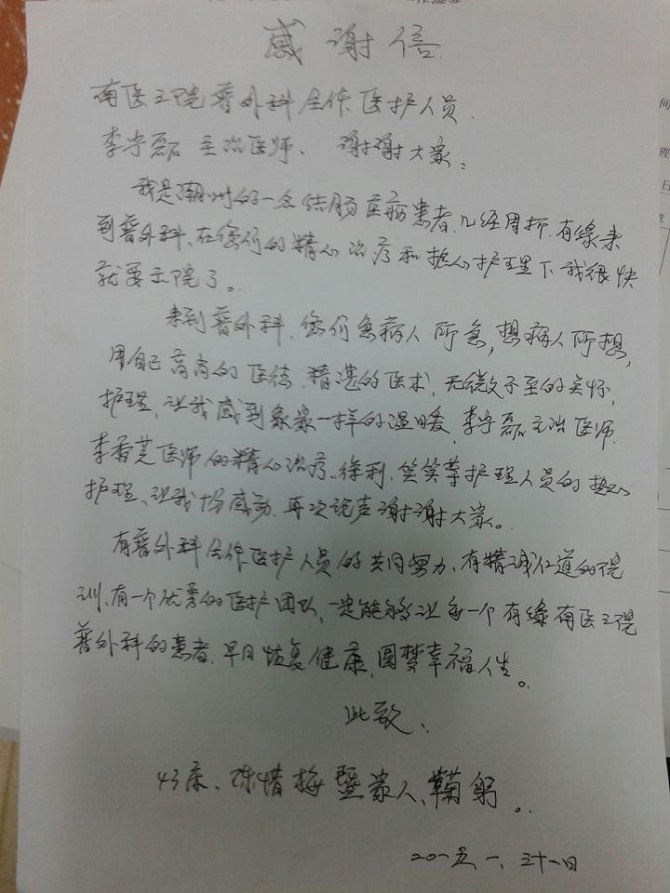 感谢信
南医三院普外科全体医护人员
李宇磊 主治医师、谢谢大家:
我是潮州的一名结肠 病患者,几经周折,有缘来
到普外科、在您们的精心治疗和热心护理下,我很快
就要出院了。
来到普外科,您们急病人所急,想病人所想,
用自己高尚的医德,精湛的医术,无微不至的关怀,
护理,让我感到象家一样的温暖,李宇磊主治医师
李香芝医师的精心治疗。徐利,笑笑等护理人员的热心
护理、让我 感动,再次说声谢谢大家。
有普外科全体医护人员的共同努力、有精诚仁道的院
训、有一个优秀的医护团队,一定能够让每一个有缘南医三院
普外科的患者,早日恢复健康,圆梦幸福人生。
此致、
43床、陈惜梅暨家人、鞠躬。
二〇一五、一、三十一日